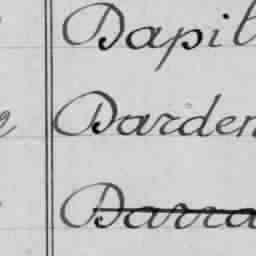 Dapil
Darden
Darra